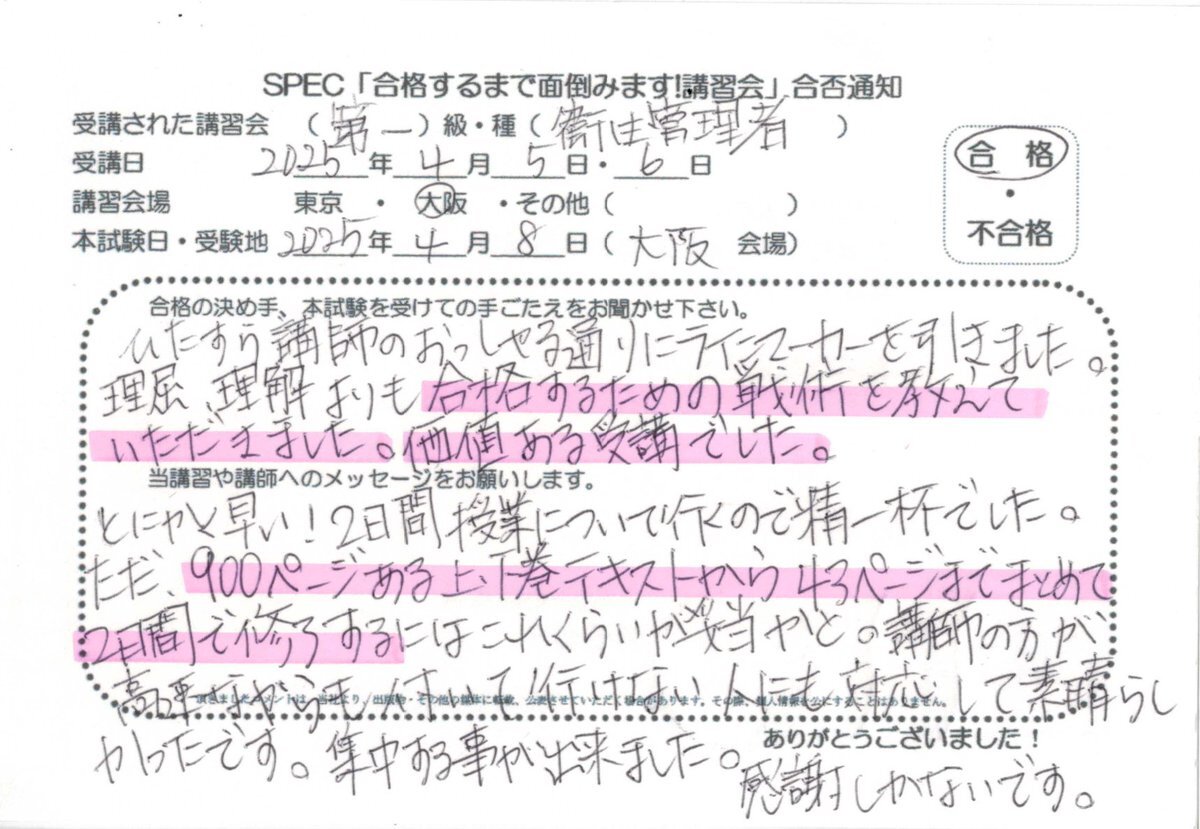 SPEC「合格するまで面倒みます!講習会」合否通知
受講された講習会 （第一）級・種（衛生管理者）
受講日 2025年4月5日・6日
合 格
・
不合格
講習会場 東京 ・ 大阪 ・その他（ ）
本試験日・受験地 2025年4月8日（大阪 会場）
合格の決め手、本試験を受けての手ごたえをお聞かせ下さい。
ひたすら講師のおっしゃる通りにラインマーカーを引きました。
理屈、理解よりも合格するための戦術を教えて
いただきました。価値ある受講でした。
当講習や講師へのメッセージをお願いします。
とにかく早い！2日間授業について行くので精一杯でした。
ただ、900ページある上、下巻テキストから43ページまでまとめて
2日間で修了するにはこれくらいが妥当かと。講師の方が
高速ながらも、付いて行けない人にも対応して素晴らし
頂きましたコメントは、当社より、出版物・その他の媒体に転載、公表させていただく場合があります。その際、個人情報を公にすることはありません。
かったです。集中する事が出来ました。
ありがとうございました！
感謝しかないです。